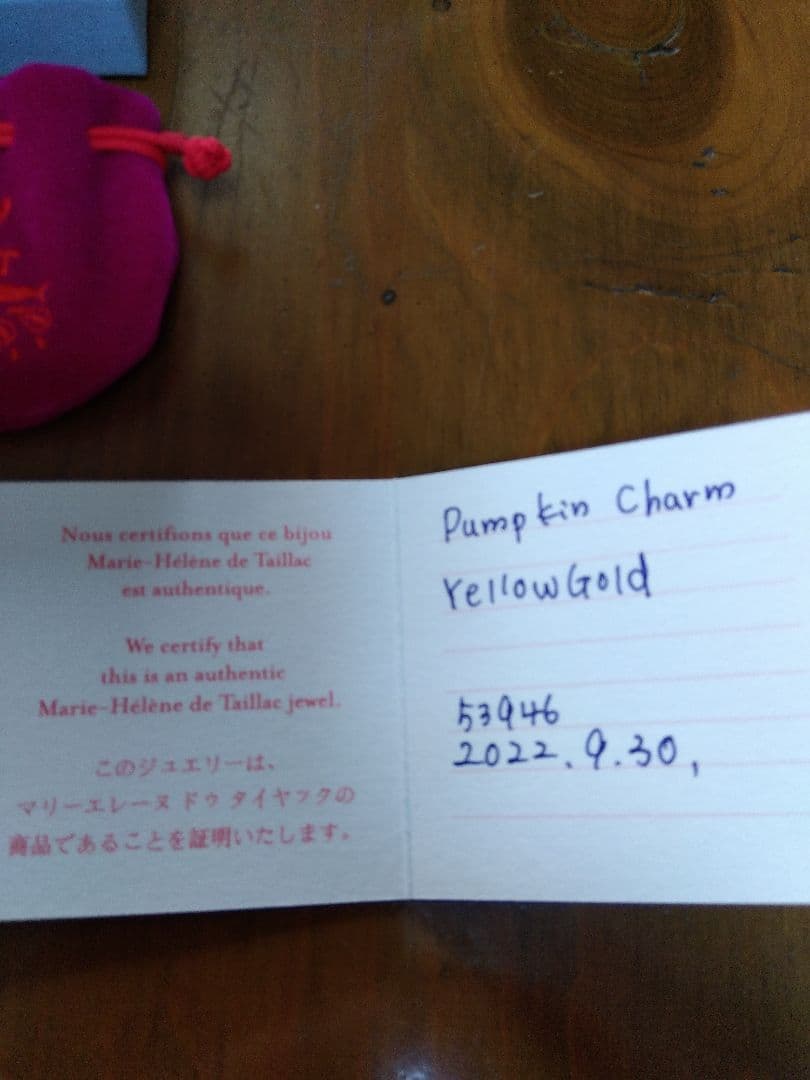 Nous certifions que ce bijou
Marie-Hélène de Taillac
est authentique.
We certify that
this is an authentic
Marie-Hélène de Taillac jewel.
このジュエリーは、
マリーエレーヌ ドゥ タイヤックの
商品であることを証明いたします。
Pumpkin Charm
Yellow Gold
53946
2022.9.30,